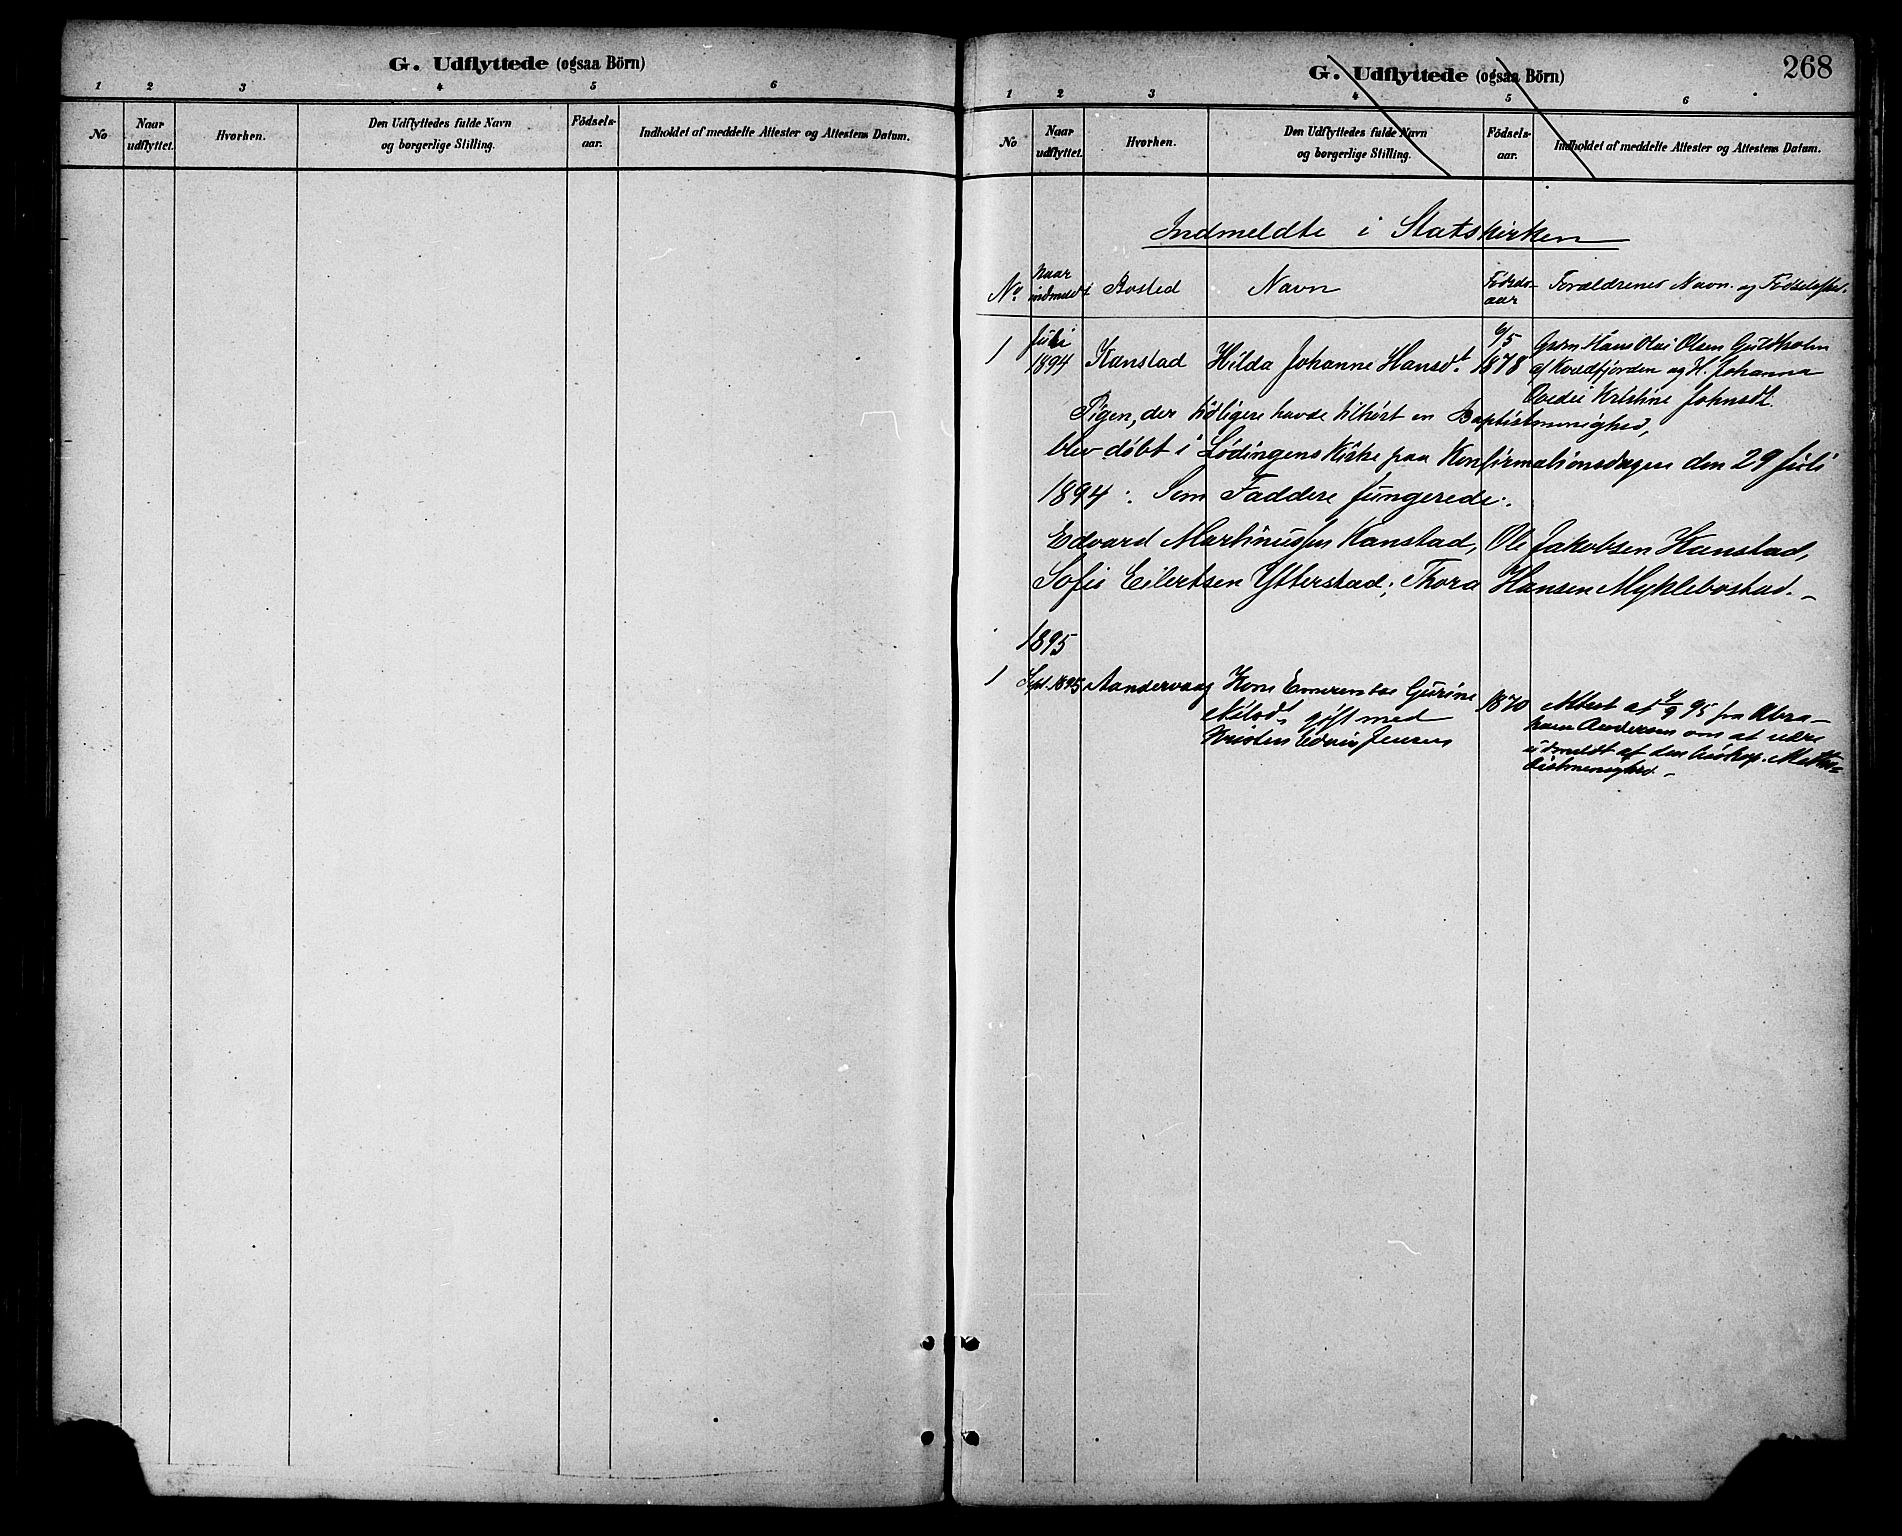 G. Udflyttede (ogsaa Börn)
1 2 3 4 5 6
No Naar udflyttet. Hvorhen. Den Udflyttedes fulde Navn og borgerlige Stilling. Födsels-aar. Indholdet af meddelte Attester og Attestens Datum.
268
G. Udflyttede (ogsaa Börn)
1 2 3 4 5 6
No Naar udflyttet. Hvorhen. Den Udflyttedes fulde Navn og borgerlige Stilling. Födsels-aar. Indholdet af meddelte Attester og Attestens Datum.
Indmeldte i Statskirken
No Naar indmeldt Bosted Navn Fødselsaar Forældrenes Navn og Fødselssted.
1 Juli 1894 Kanstad Hilda Johanne Hansdt. 6/5 1878 Gbrm Hans Olai Olsen
af Kvedfjorden og H. Johanna
Kristine Johnsdt.
Pigen, der tidligere havde tilhørt en Baptistmenighed,
blev døbt i Lødingens Kirke paa Konfirmationsdagen den 29 Juli
1894. Som Faddere fungerede:
Edvard Martinussen Kanstad, Ole Jakobsen Kanstad,
Sofie Eilertsen Ytterstad, Thora Hansen Myklebostad.
1895
1 Sept. 1895 Sandervaag Kone Emerentse Gurine 1870 Attest af 4/9 95 fra Abra-
Nilsdt, gift med ham Andersen om at være
Kristen Edvin Jensen udmeldt af den biskop. Metho-
distmenighed